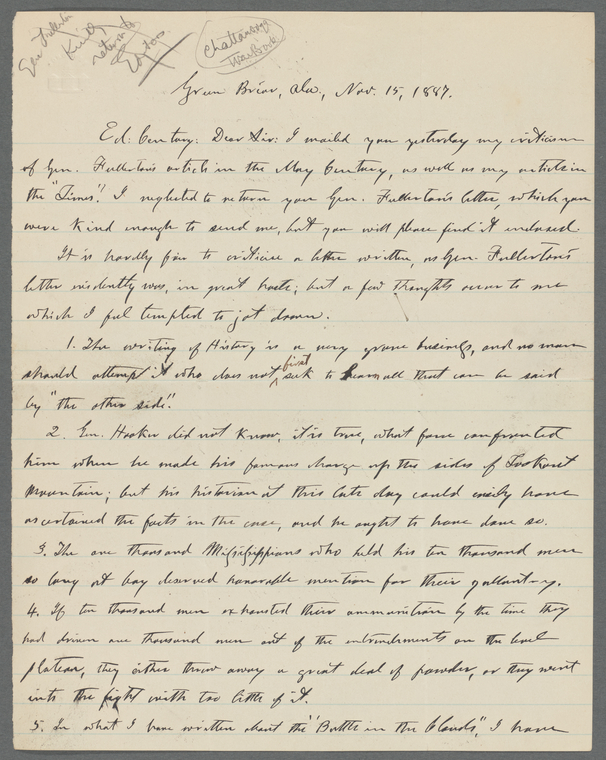 Gen Fullerton
Kindly
return to
Editors
Chattanooga
War Book
Green Brier, Ala., Nov. 15, 1887.
Ed. Century: Dear Sir: I mailed you yesterday my criticism
of Gen. Fullerton's article in the May Century, as well as my article in
the "Times". I neglected to return you Gen. Fullerton's letter, which you
were kind enough to send me, but you will please find it enclosed.
It is hardly fair to criticise a letter written, as Gen. Fullerton's
letter evidently was, in great haste; but a few thoughts occur to me
which I feel tempted to jot down.
1. The writing of History is a very grave business, and no man
should attempt it who does not first seek to learn all that can be said
by "the other side".
2. Gen. Hooker did not know, it is true, what force confronted
him when he made his famous charge up the sides of Lookout
Mountain; but his historian at this late day could easily have
ascertained the facts in the case, and he ought to have done so.
3. The one thousand Mississippians who held his ten thousand men
so long at bay deserved honorable mention for their gallantry.
4. If ten thousand men exhausted their ammunition by the time they
had driven one thousand men out of the entrenchments on the level
plateau, they either threw away a great deal of powder, or they went
into the fight with too little of it.
5. In what I have written about the "Battle in the Clouds", I have